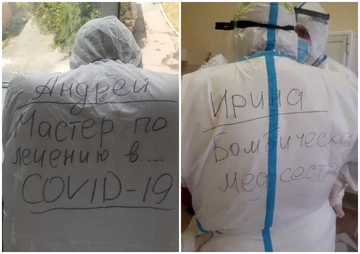 Андрей
Мастер по
лечению в....
COVID-19
Ирина
Бомбическа
медсест